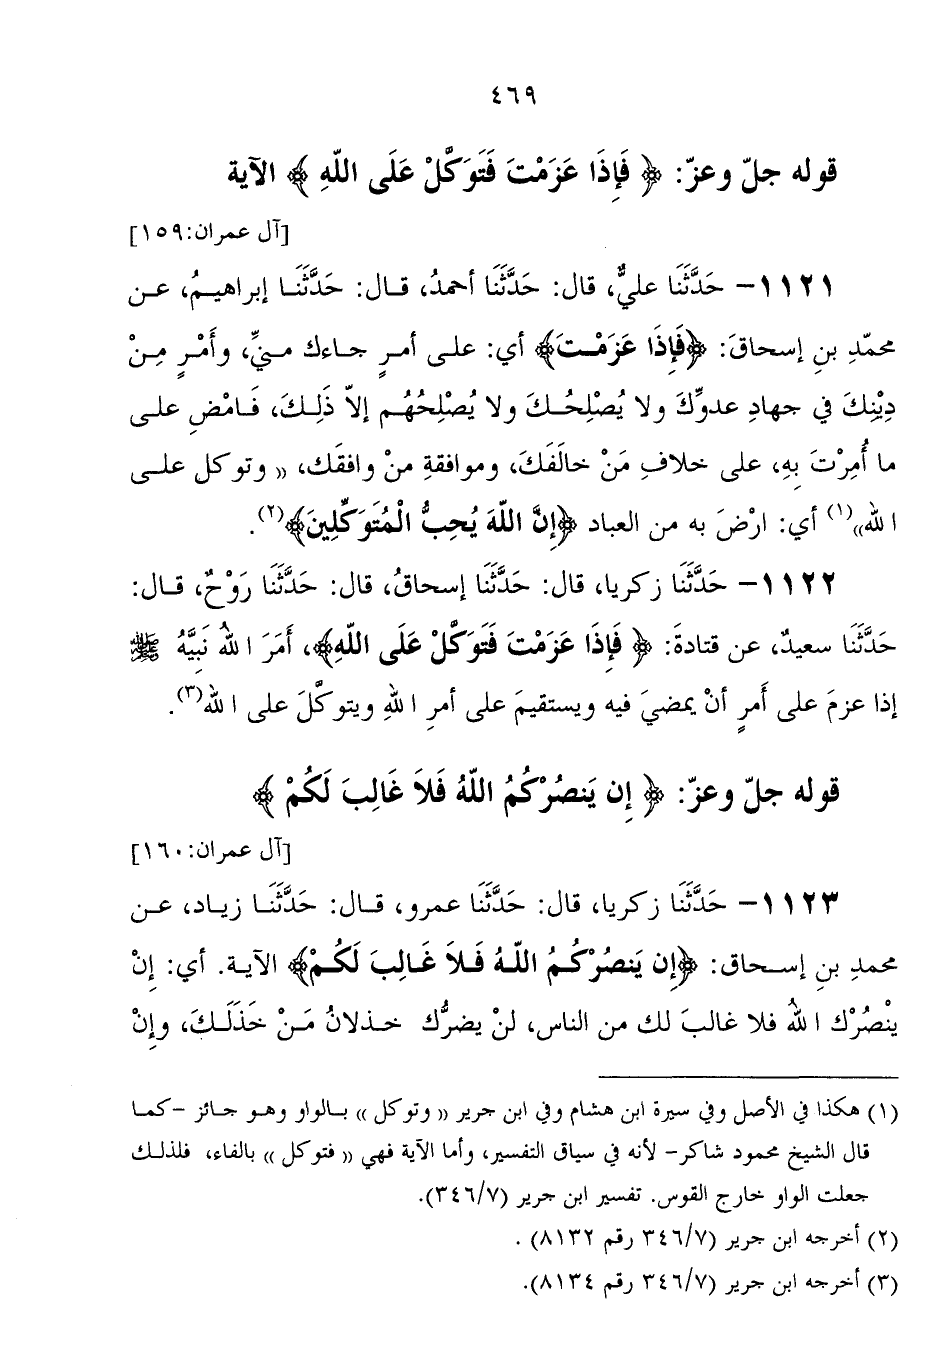 ٤٦٩
قوله جلّ وعزّ: ﴿ فَإِذَا عَزَمْتَ فَتَوَكَّلْ عَلَى اللَّهِ ﴾ الآية
[آل عمران:١٥٩]
١١٢١- حَدَّثَنَا عليٌّ، قال: حَدَّثَنَا أحمدُ، قـال: حَدَّثَنَـا إبراهيـمُ، عـن
محمّدِ بنِ إسحاقَ: ﴿فَإِذَا عَزَمْـتَ﴾ أي: علـى أمـرٍ جـاءك مـنيِّ، وأَمْـرٍ مِـنْ
دِيْنِكَ في جهادِ عدوِّكَ ولا يُصْلِحُـكَ ولا يُصْلِحُهُـم إلاّ ذَلِـكَ، فَـامْضِ علـى
ما أُمِرْتَ بِهِ، على خلافِ مَنْ خالَفَكَ، وموافقةِ منْ وافقَك، « وتوكل علـى
الله»(١) أي: ارْضَ به من العباد ﴿إِنَّ اللَّهَ يُحِبُّ الْمُتَوَكِّلِينَ﴾(٢).
١١٢٢- حَدَّثَنَا زكريا، قال: حَدَّثَنَا إسحاقُ، قال: حَدَّثَنَا رَوْحٌ، قـال:
حَدَّثَنَا سعيدٌ، عن قتادةَ: ﴿ فَإِذَا عَزَمْتَ فَتَوَكَّلْ عَلَى اللَّهِ﴾، أَمَرَ اللهُ نَبِيَّهُ ﷺ
إذا عزمَ على أَمرٍ أنْ يمضيَ فيه ويستقيمَ على أمرِ اللهِ ويتوكَّلَ على الله(٣).
قوله جلّ وعزّ: ﴿ إِن يَنصُرْكُمُ اللَّهُ فَلاَ غَالِبَ لَكُمْ ﴾
[آل عمران:١٦٠]
١١٢٣- حَدَّثَنَا زكريا، قال: حَدَّثَنَا عمرو، قـال: حَدَّثَنَـا زيـاد، عـن
محمدِ بنِ إسـحاق: ﴿إِن يَنصُرْكُـمُ اللَّـهُ فَـلاَ غَـالِبَ لَكُـمْ﴾ الآيـة. أي: إنْ
ينْصُرْك اللهُ فلا غالبَ لك من الناس، لنْ يضرُّك خـذلانُ مَـنْ خَذَلَـكَ، وإنْ
(١) هكذا في الأصل وفي سيرة ابن هشام وفي ابن جرير « وتوكل » بـالواو وهـو جـائز -كمـا
قال الشيخ محمود شاكر- لأنه في سياق التفسير، وأما الآية فهي « فتوكل » بالفاء، فلذلـك
جعلت الواو خارج القوس. تفسير ابن جرير (٣٤٦/٧).
(٢) أخرجه ابن جرير (٣٤٦/٧ رقم ٨١٣٢) .
(٣) أخرجه ابن جرير (٣٤٦/٧ رقم ٨١٣٤).